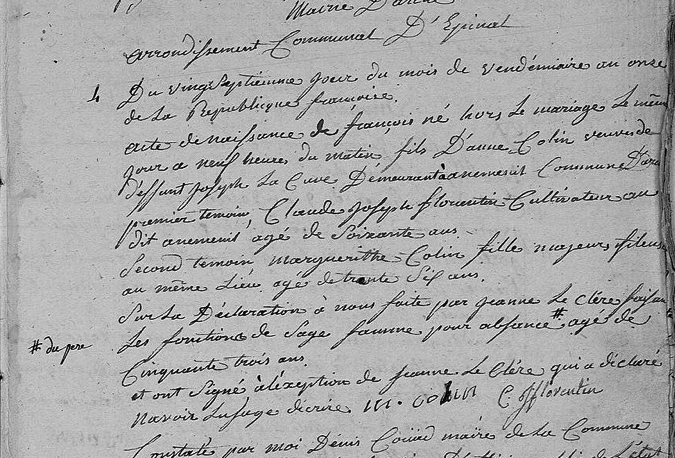 Mairie
arrondissement Communal D'Epinal
4 Du vingt septienne jour du mois de vendémiaire an onze
de La Republique françoise.
acte de naissance de françois né hors le mariage Le même
jour a neuf heures du matin, fils D'anne Colin veuve de
d'effunt Joseph La Cuve Demeurant à anemenil Commune
premier temoin, Claude Joseph florentin Cultivateur au
dit anemenil agé de Soixante ans.
Second temoin margueritte Colin fille majeure fileuse
au même Lieu, age de trente Six ans.
Sur La Declaration à nous faite par jeanne Le Clére faisan
# du pere Les fonctions de Sage famme pour absance # agé de
Cinquante trois ans.
et ont Signé à l'éxeption de jeanne Le Clére qui a dictaré
navoir Lusage decrire m. colin C. Jflorentin
Constaté par moi Denis maire de La Commune